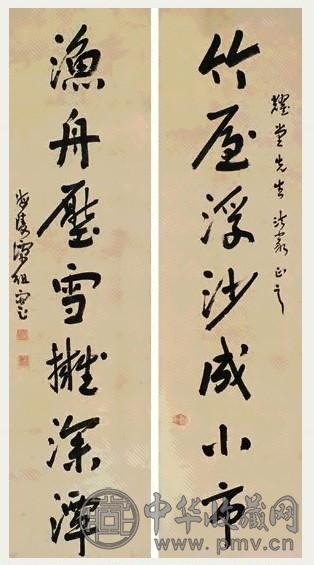 耀堂先生法家正之
竹屋浮沙成小市
漁舟壓雪擁深潭
海陵譚組雲
中华收藏网
www.pmv.cn